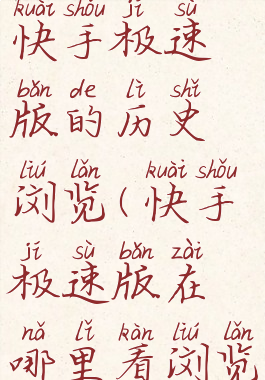 kuài shǒu jí sù
快手极速
bǎn de lì shǐ
版的历史
liú lǎn kuài shǒu
浏览(快手
jí sù bǎn zài
极速版在
nǎ lǐ kàn liú lǎn
哪里看浏览